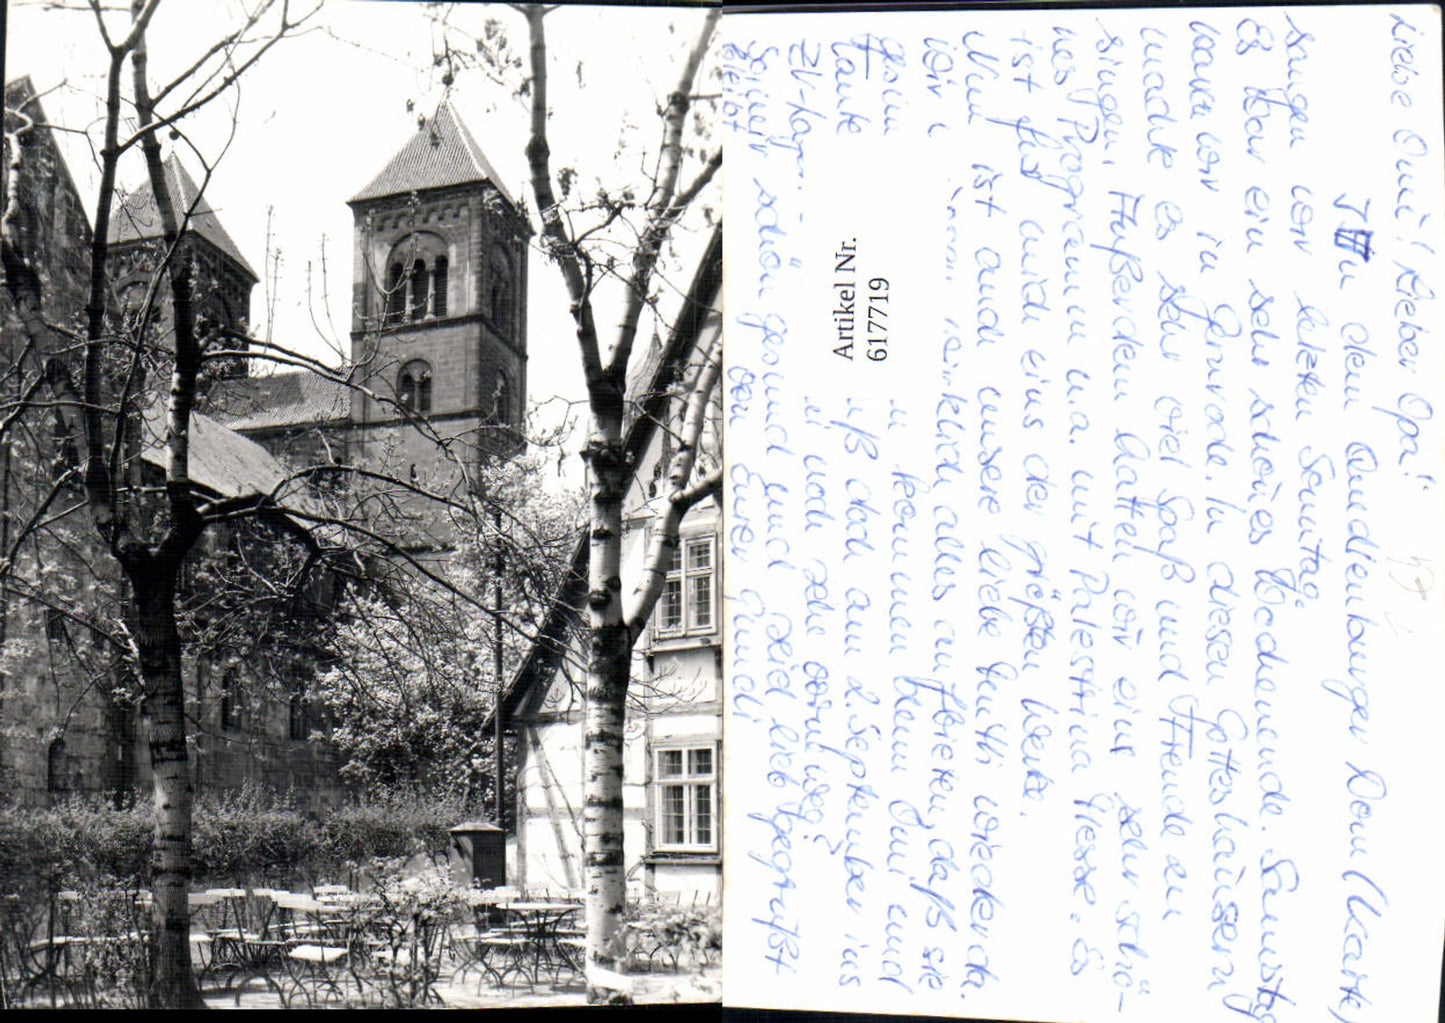 Liebe Omi! Lieber Opa!
In dem Quedlenburger Dom (Karte)
sangen wir letzten Sonntag.
Es war ein sehr schönes Wochenende. Samstag
waren wir in Gernrode. In diesen Gotteshäusern
machte es sehr viel Spaß und Freude zu
singen. Außerdem hatten wir ein sehr schö-
nes Programm u.a. mit Palestrina Messe. Es
ist für mich eins der größten Werke.
Nun ist auch unsere liebe Muthi wieder da.
wir wirklich alles anbieten, daß sie
gesund kommen beim Omi und
Tante uß doch am 2. September ins
ZV-Lager
Seid schön gesund und seid lieb gegrüßt
bleibt von Eurer Gundi
Artikel Nr.
617719